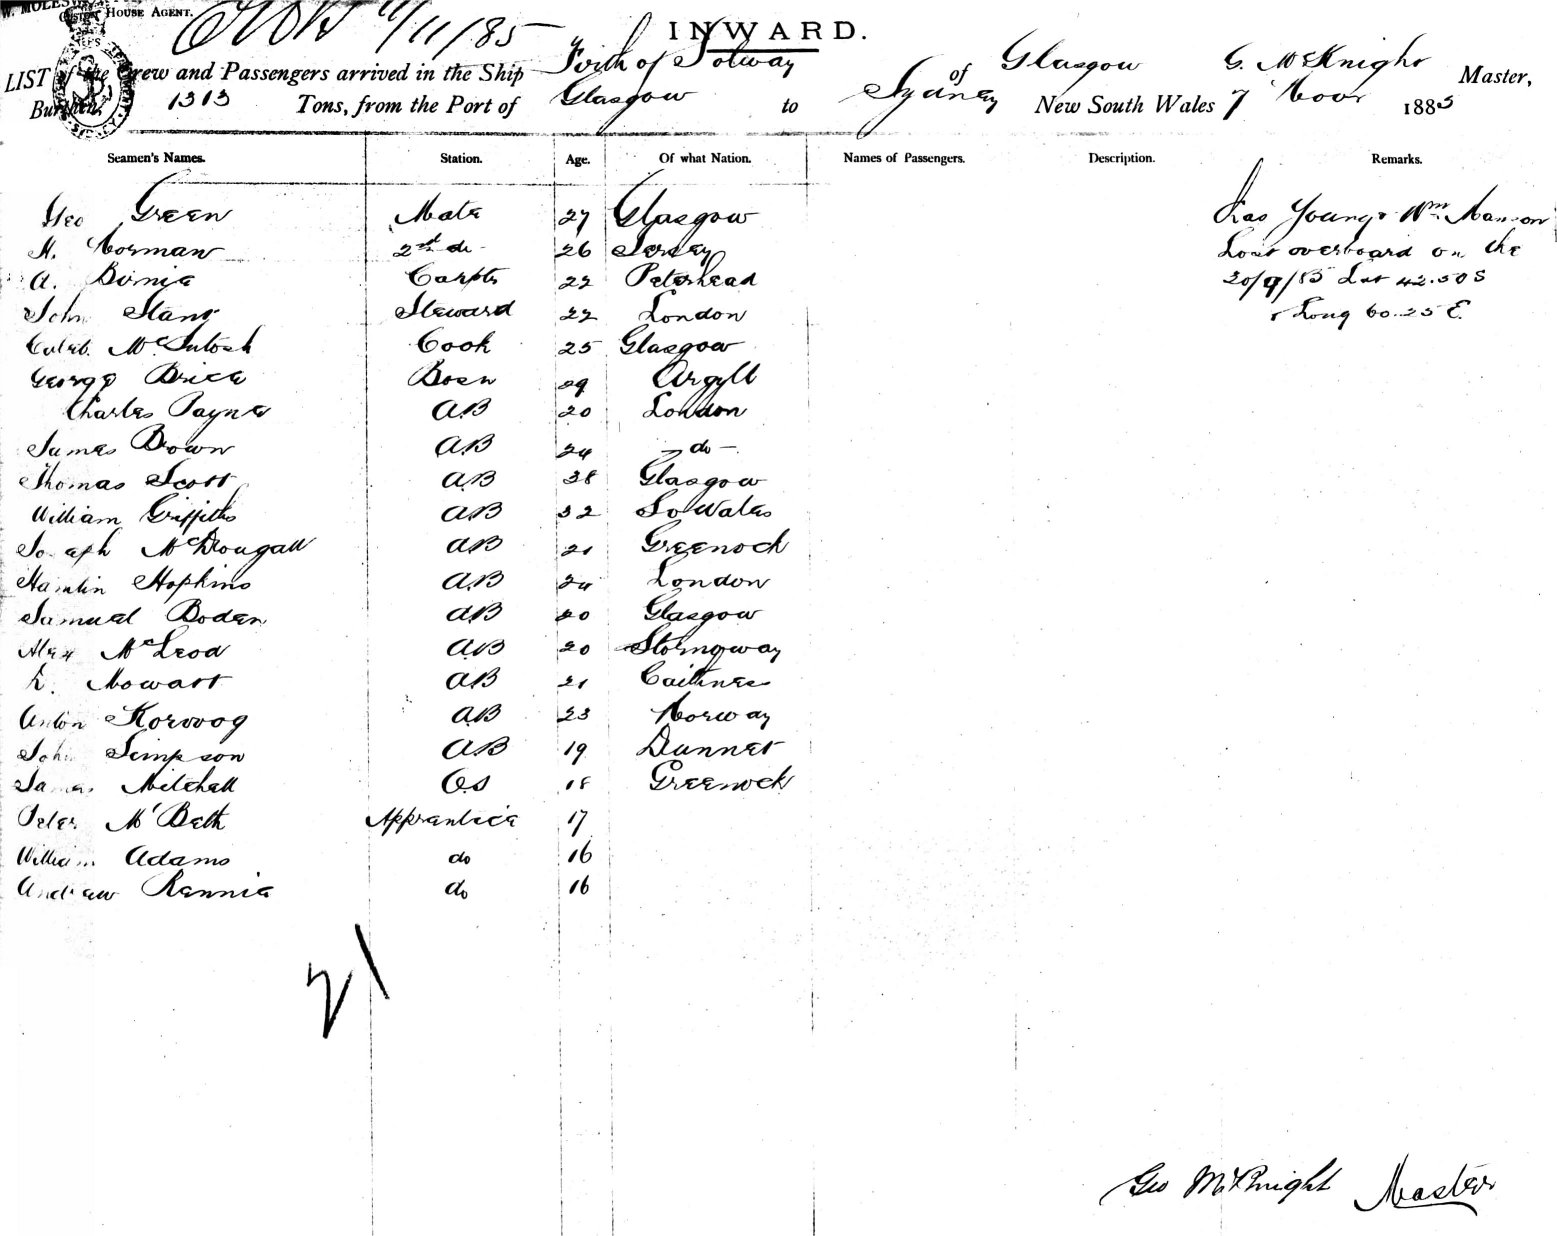 W. MOLES
CUSTOM HOUSE AGENT.
11/11/85
INWARD.
LIST of the Crew and Passengers arrived in the Ship Frith of Solway of Glasgow G. McKnight Master,
Burthen, 1313 Tons, from the Port of Glasgow to Sydney New South Wales 7 Novr 1885
Seamen's Names. Station. Age. Of what Nation. Names of Passengers. Description. Remarks.
Geo Green Mate 27 Glasgow
H. Norman 2nd do 26 Jersey
A. Birnie Carptr 22 Peterhead
John Stang Steward 22 London
McIntosh Cook 25 Glasgow
George Brice Bosn 29 Argyll
Charles Payne AB 20 London
James Brown AB 24 - do -
Thomas Scott AB 38 Glasgow
William Griffiths AB 32 So Wales
Joseph McDougall AB 21 Greenock
Hamlin Hopkins AB 24 London
Samuel Boden AB 20 Glasgow
Alex McLeod AB 20 Stornoway
D. Mowatt AB 21 Caithness
Anton AB 23 Norway
John Simpson AB 19 Dunnet
James Mitchell OS 18 Greenock
Peter McBeth Apprentice 17
William Adams do 16
Andrew Rennie do 16
Chas Young & Wm Manson
Lost overboard on the
20/9/85 Lat 42.50 S
& Long 60.25 E.
21
Geo McKnight Master